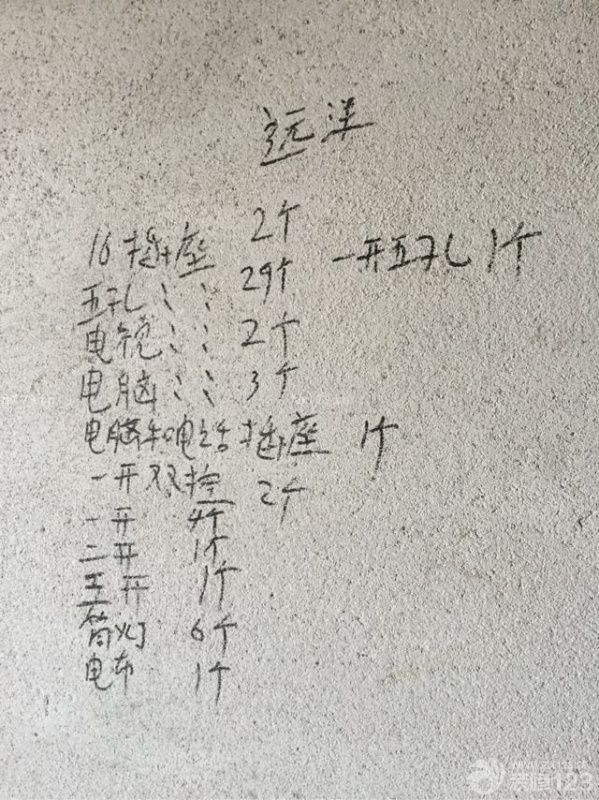 远洋
16插座 2个
一开五孔 1个
五孔〃 29个
电视〃 2个
电脑〃 3个
电脑和电话插座 1个
一开双控 2个
一开 4个
二开 1个
三开 1个
筒灯 6个
电布 1个
装信123